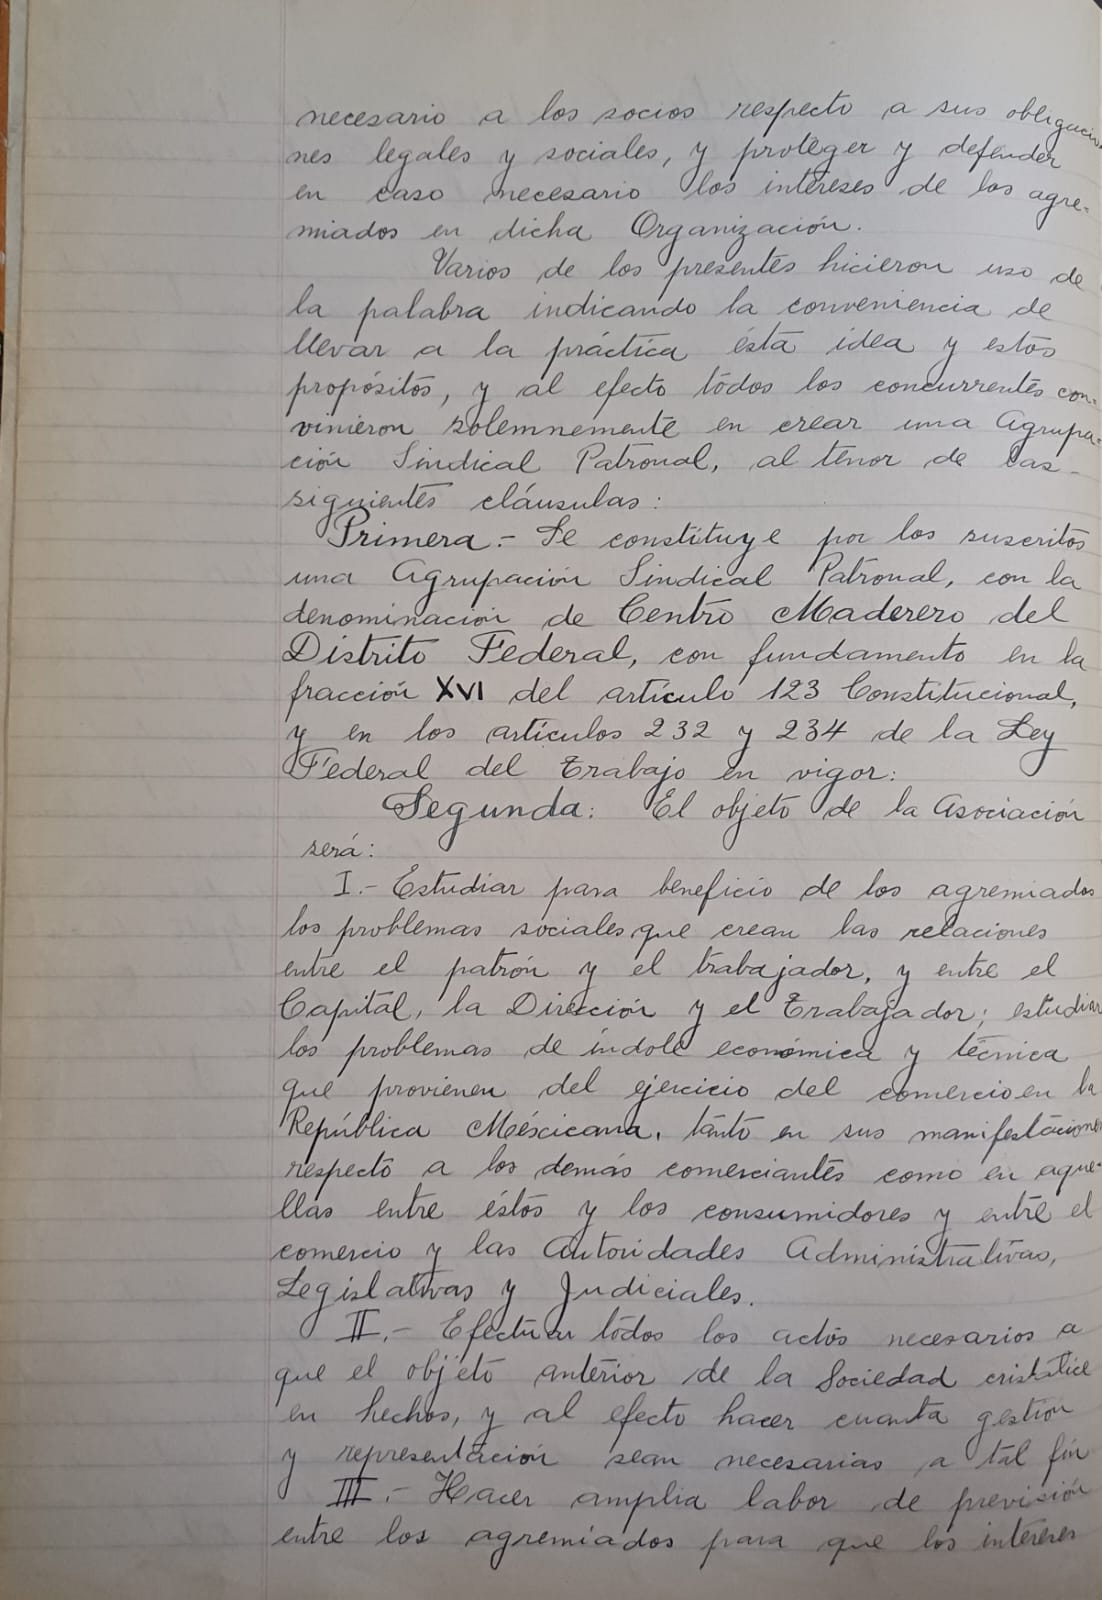 necesario a los socios respecto a sus obligacio-
nes legales y sociales, y proteger y defender
en caso necesario los intereses de los agre-
miados en dicha Organización.
Varios de los presentes hicieron uso de
la palabra indicando la conveniencia de
llevar a la práctica ésta idea y estos
propósitos, y al efecto todos los concurrentes con-
vinieron solemnemente en crear una Agrupa-
ción Sindical Patronal, al tenor de las
siguientes cláusulas:
Primera.- Se constituye por los suscritos
una Agrupación Sindical Patronal, con la
denominación de Centro Maderero del
Distrito Federal, con fundamento en la
fracción XVI del artículo 123 Constitucional,
y en los artículos 232 y 234 de la Ley
Federal del Trabajo en vigor:
Segunda: El objeto de la Asociación
será:
I.- Estudiar para beneficio de los agremiados
los problemas sociales que crean las relaciones
entre el patrón y el trabajador, y entre el
Capital, la Dirección y el Trabajador; estudiar
los problemas de índole económica y técnica
que provienen del ejercicio del comercio en la
República Méxicana, tanto en sus manifestaciones
respecto a los demás comerciantes como en aque-
llas entre éstos y los consumidores y entre el
comercio y las Autoridades Administrativas,
Legislativas y Judiciales.
II.- Efectuar todos los actos necesarios a
que el objeto anterior de la Sociedad cristalice
en hechos, y al efecto hacer cuanta gestión
y representación sean necesarias a tal fin
III.- Hacer amplia labor de previsión
entre los agremiados para que los intereses